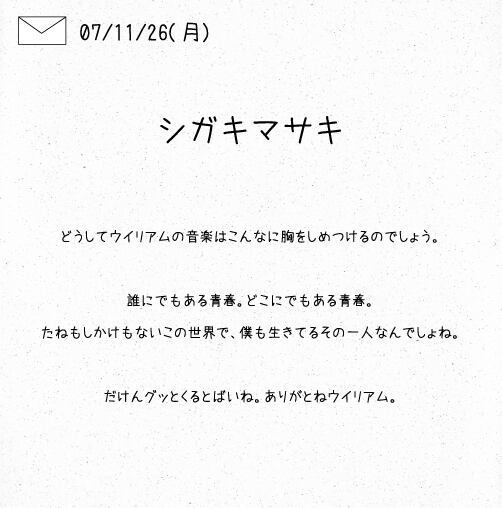 07/11/26(月)
シガキマサキ
どうしてウイリアムの音楽はこんなに胸をしめつけるのでしょう。
誰にでもある青春。どこにでもある青春。
たねもしかけもないこの世界で、僕も生きてるその一人なんでしょね。
だけんグッとくるとばいね。ありがとねウイリアム。